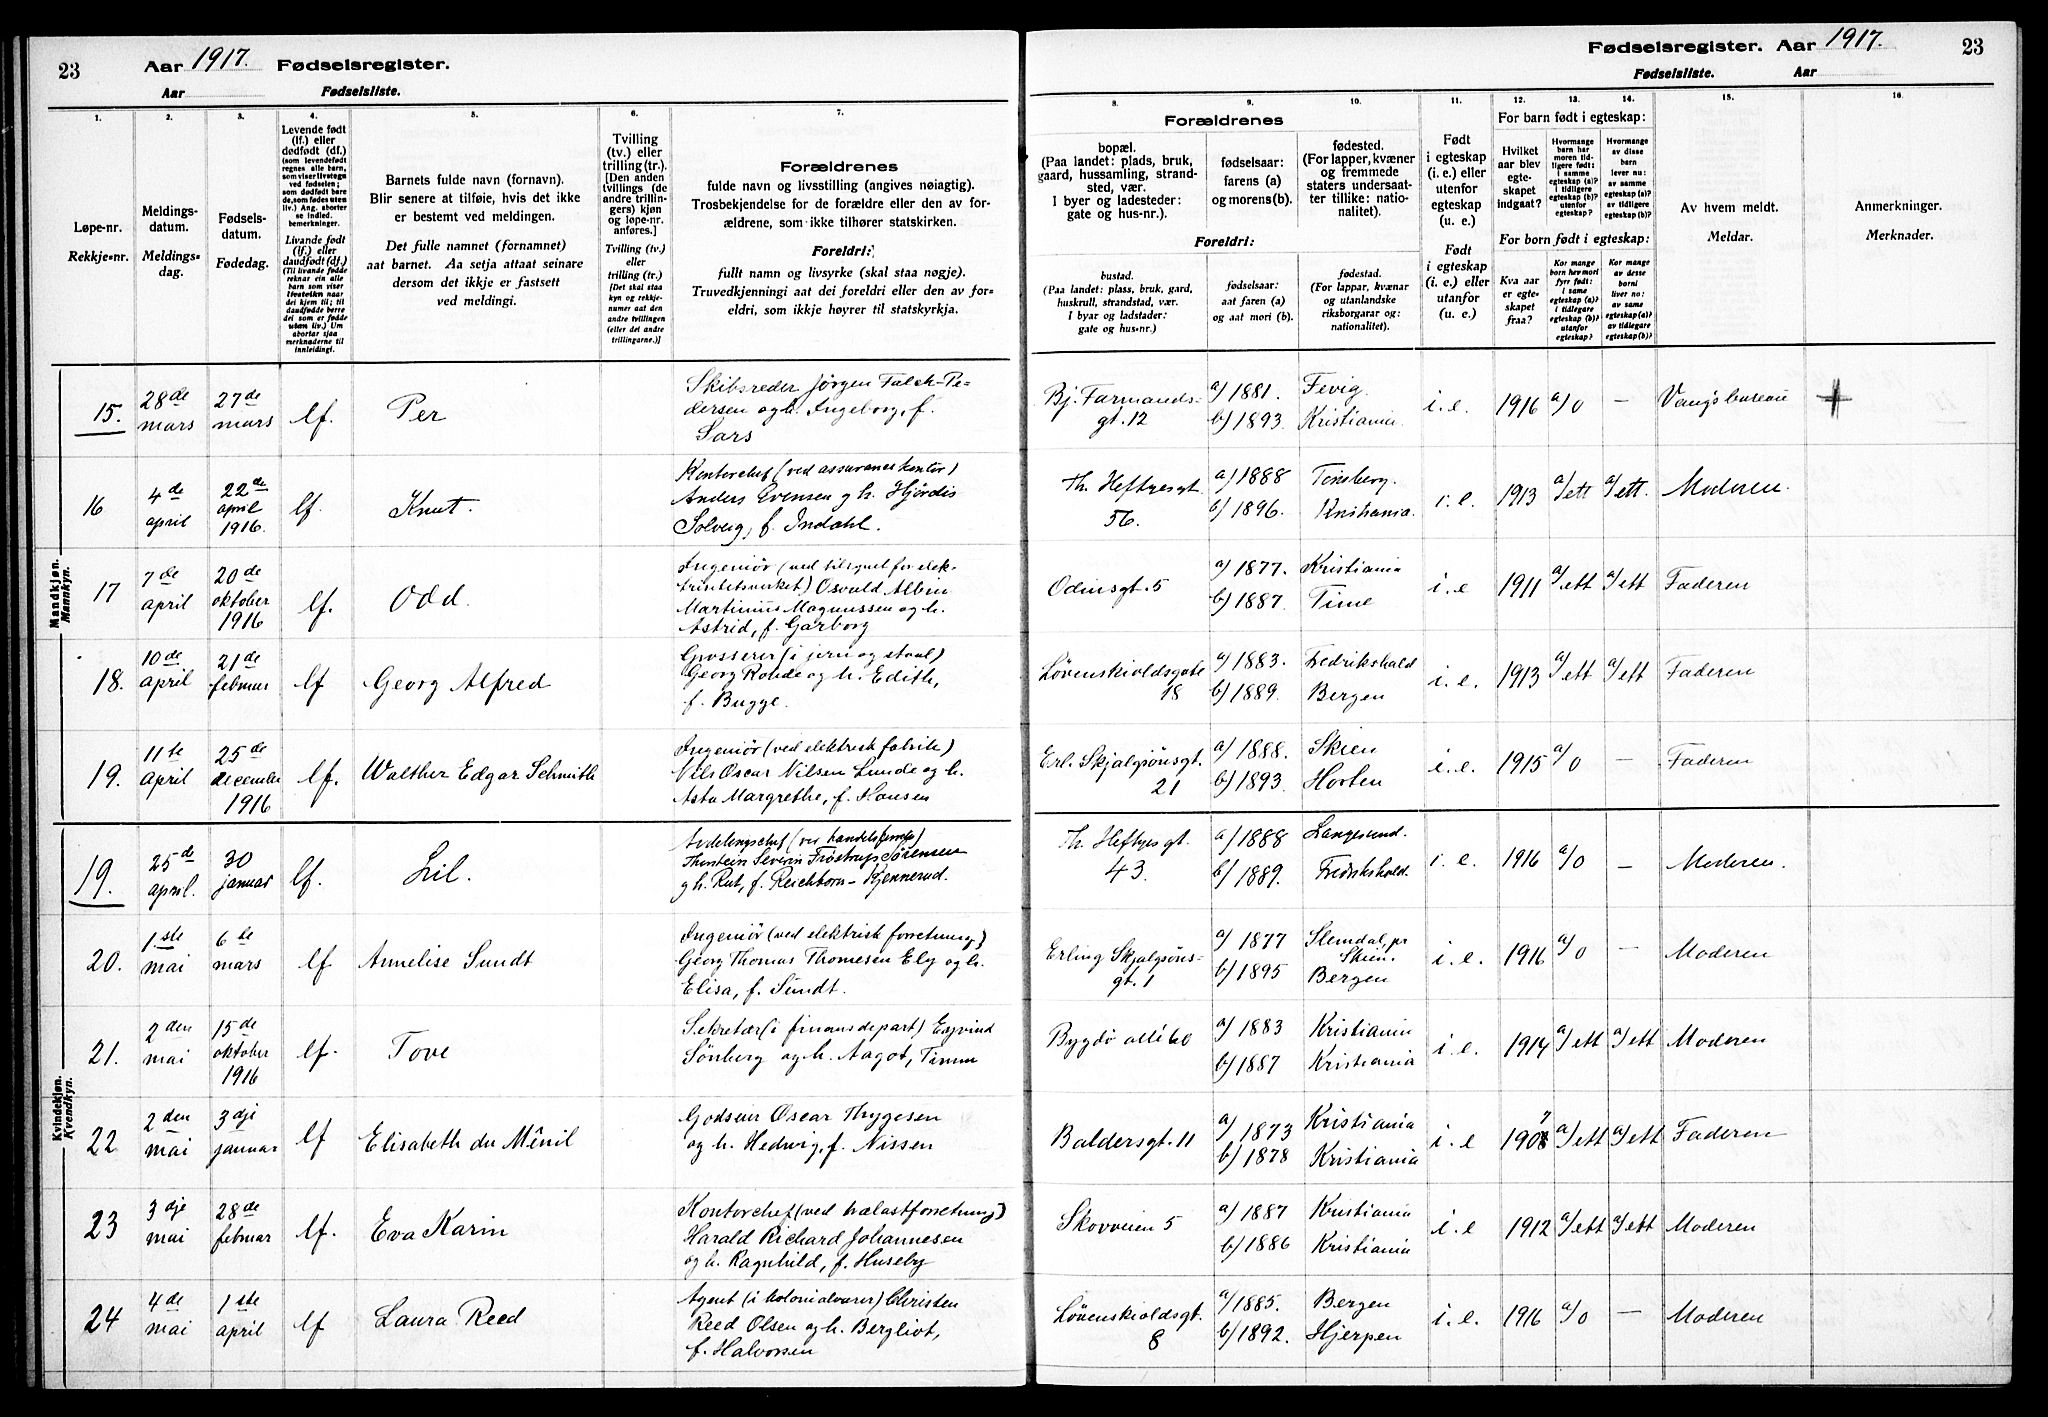 23
Aar 1917. Fødselsregister.
Aar Fødselsliste.
Fødselsregister. Aar 1917.
23
Fødselsliste. Aar
1.
Løpe-nr.
Rekkje=nr.
2.
Meldings-
datum.
Meldings=
dag.
3.
Fødsels-
datum.
Fødedag.
4.
Levende født
(lf.) eller
dødfødt (df.)
(som levendefødt
regnes alle barn,
som viser livstegn
ved fødselen;
som dødfødt bare
de, som fødes uten
liv.) Ang. aborter
se indled.
bemerkninger.
Livande født
(lf.) eller
daudfødt (df.)
(Til livande fødde
reknar ein alle
barn som viser
livsteikn naar
dei kjem til; til
daudfødde berre
dei som er fødde
utan liv.) Um
abortar sjaa
merknaderne til
innleidingi.
5.
Barnets fulde navn (fornavn).
Blir senere at tilføie, hvis det ikke
er bestemt ved meldingen.
Det fulle namnet (fornamnet)
aat barnet. Aa setja attaat seinare
dersom det ikkje er fastsett
ved meldingi.
6.
Tvilling
(tv.) eller
trilling (tr.).
[Den anden
tvillings (de
andre trillin-
gers) kjøn
og løpe-nr.
anføres.]
Tvilling (tv.)
eller
trilling (tr.)
[Det skal staa
kyn og rekkje-
numer aat den
andre tvillingen
(eller dei andre
trillingarne.)]
7.
Forældrenes
fulde navn og livsstilling (angives nøiagtig).
Trosbekjendelse for de forældre eller den av for-
ældrene, som ikke tilhører statskirken.
Foreldri:
fullt namn og livsyrke (skal staa nøgje).
Truvedkjenningi aat dei foreldri eller den av for-
eldri, som ikkje høyrer til statskyrkja.
8.
9.
10.
Forældrenes
bopæl.
(Paa landet: plads, bruk,
gaard, hussamling, strand-
sted, vær.
I byer og ladesteder:
gate og hus-nr.).
fødselsaar:
farens (a)
og morens (b).
fødested.
(For lapper, kvæner
og fremmede
staters undersaat-
ter tillike: natio-
nalitet).
Foreldri:
bustad.
(Paa landet: plass, bruk, gard,
huskrull, strandstad, vær.
I byar og ladstader:
gate og hus-nr.)
fødselsaar:
aat faren (a)
og aat mori (b).
fødestad.
(For lappar, kvænar
og utanlandske
riksborgarar og:
nationalitet).
11.
Født
i egteskap
(i. e.) eller
utenfor
egteskap
(u. e.)
Født
i egteskap
(i. e.) eller
utanfor
(u. e.)
12.
13.
14.
For barn født i egteskap:
Hvilket
aar blev
egte-
skapet
indgaat?
Hvormange
barn har
moren tid-
ligere født:
i samme
egteskap (a)?
i tidligere
egteskap (b)?
utenfor
egteskap?
Hvormange
av disse
barn
lever nu:
av samme
egteskap (a)?
av tidligere
egteskap (b)?
For born født i egteskap:
Kva aar
er egte-
skapet
fraa?
Kor mange
born hev mori
fyrr født:
i same
egteskap (a)?
i tidlegare
egteskap (b)?
utanfor
egteskap?
Kor mange
av desse
borni
liver no:
av same
egteskap (a)?
av tidlegare
egteskap (b)?
15.
Av hvem meldt.
Meldar.
16.
Anmerkninger.
Merknader.
Mandkjøn.
Mannkyn.
15. 28de mars 27de mars lf. Per
Skibsreder Jørgen Falch-Pe-
dersen og h. Ingeborg, f.
Sars
Bj. Farmands-
gt. 12
a/ 1881. Fevig
b/ 1893. Kristiania
i. e. 1916 a/0 — Vangsbureau +
16 4de april 22de april 1916. lf. Knut.
Kontorchef (ved assurancekontor)
Anders Evensen og h. Hjørdis
Solveig, f. Indahl.
Th. Heftyesgt.
56.
a/ 1888 Tønsberg.
b/ 1896. Kristiania.
i. e. 1913 a/ett a/ett. Moderen.
17 7de april 20de oktober 1916 lf. Odd.
Ingeniør (ved tilsynet for elek-
tricitetsverket) Osvald Albin
Martinius Magnussen og h.
Astrid, f. Garborg
Odinsgt. 5
a/ 1877. Kristiania
b/ 1887. Time
i. e 1911 a/ett a/ett Faderen
18. 10de april 21de februar lf Georg Alfred
Grosserer (i jern og staal)
Georg Rohde og h. Edith,
f. Bugge.
Løvenskioldsgate
18
a/ 1883. Fredrikshald
b/ 1889. Bergen
i. e. 1913 a/ett a/ett Faderen
19. 11te april 25de december 1916 lf. Walther Edgar Schmith
Ingeniør (ved elektrisk fabrik)
Nils Oscar Nilsen Lunde og h.
Asta Margrethe, f. Hansen
Erl. Skjalgsønsgt.
21
a/ 1888. Skien
b/ 1893. Horten
i. e. 1915 a/0 — Faderen
Kvindekjøn.
Kvendkyn.
19. 25de april. 30 januar lf. Lil.
Avdelingschef (ved handelsfirma)
Thorstein Severin Frøstrup Sørensen
og h. Rut, f. Reichborn-Kjennerud.
Th. Heftyesgt.
43.
a/ 1888 Langesund.
b/ 1889. Fredrikshald.
i. e. 1916 a/0 — Moderen.
20. 1.ste mai 6te mars lf Annelise Sundt
Ingeniør (ved elektrisk forretning)
Georg Thomas Thomesen Ely og h.
Elisa, f. Sundt.
Erling Skjalgsøns-
gt. 1
a/ 1877 Slemdal, pr
Skien.
b/ 1895 Bergen
i. e. 1916 a/0 — Moderen
21. 2den mai 15de oktober 1916 lf. Tove
Sekretær (i finansdepart) Eyvind
Sønberg og h. Aagot, Timm
Bygdø allé 60
a/ 1883 Kristiania
b/ 1887 Kristiania
i. e. 1914 a/ett a/ett Moderen
22 2den mai 3dje januar lf Elisabeth du Mênil
Godseier Oscar Thygesen
og h. Hedwig, f. Nissen
Baldersgt. 11
a/ 1873 Kristiania
b/ 1878 Kristiania
i. e 1907 a/ett a/ett Faderen
23 3dje mai 28de februar lf. Eva Karin
Kontorchef (ved trælastforretning)
Harald Richard Johannesen
og h. Ragnhild, f. Huseby
Skovveien 5
a/ 1887 Kristiania
b/ 1886 Kristiania
i. e 1912 a/ett a/ett Moderen
24 4de mai 1ste april lf Laura Reed
Agent (i kolonialvarer) Christen
Reed Olsen og h. Bergliot,
f. Halvorsen
Løvenskioldsgt.
8
a/ 1885. Bergen
b/ 1892. Hjerpen
i. e. 1916 a/0 — Moderen